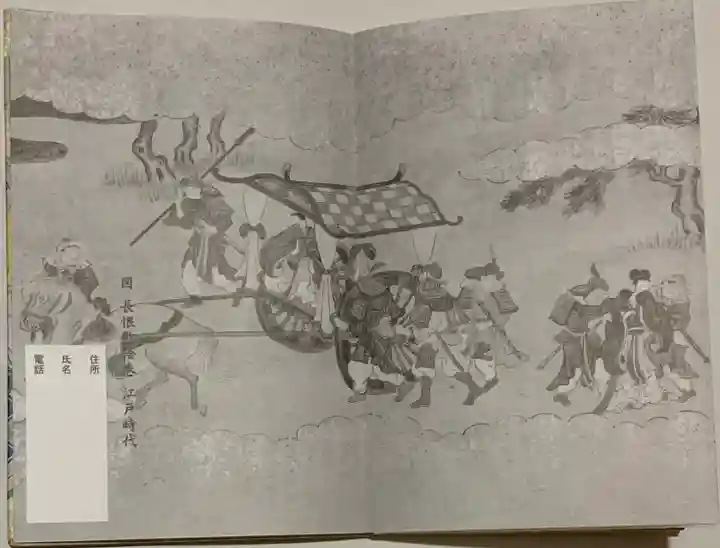 図 長恨歌絵巻 江戸時代
住所
氏名
電話